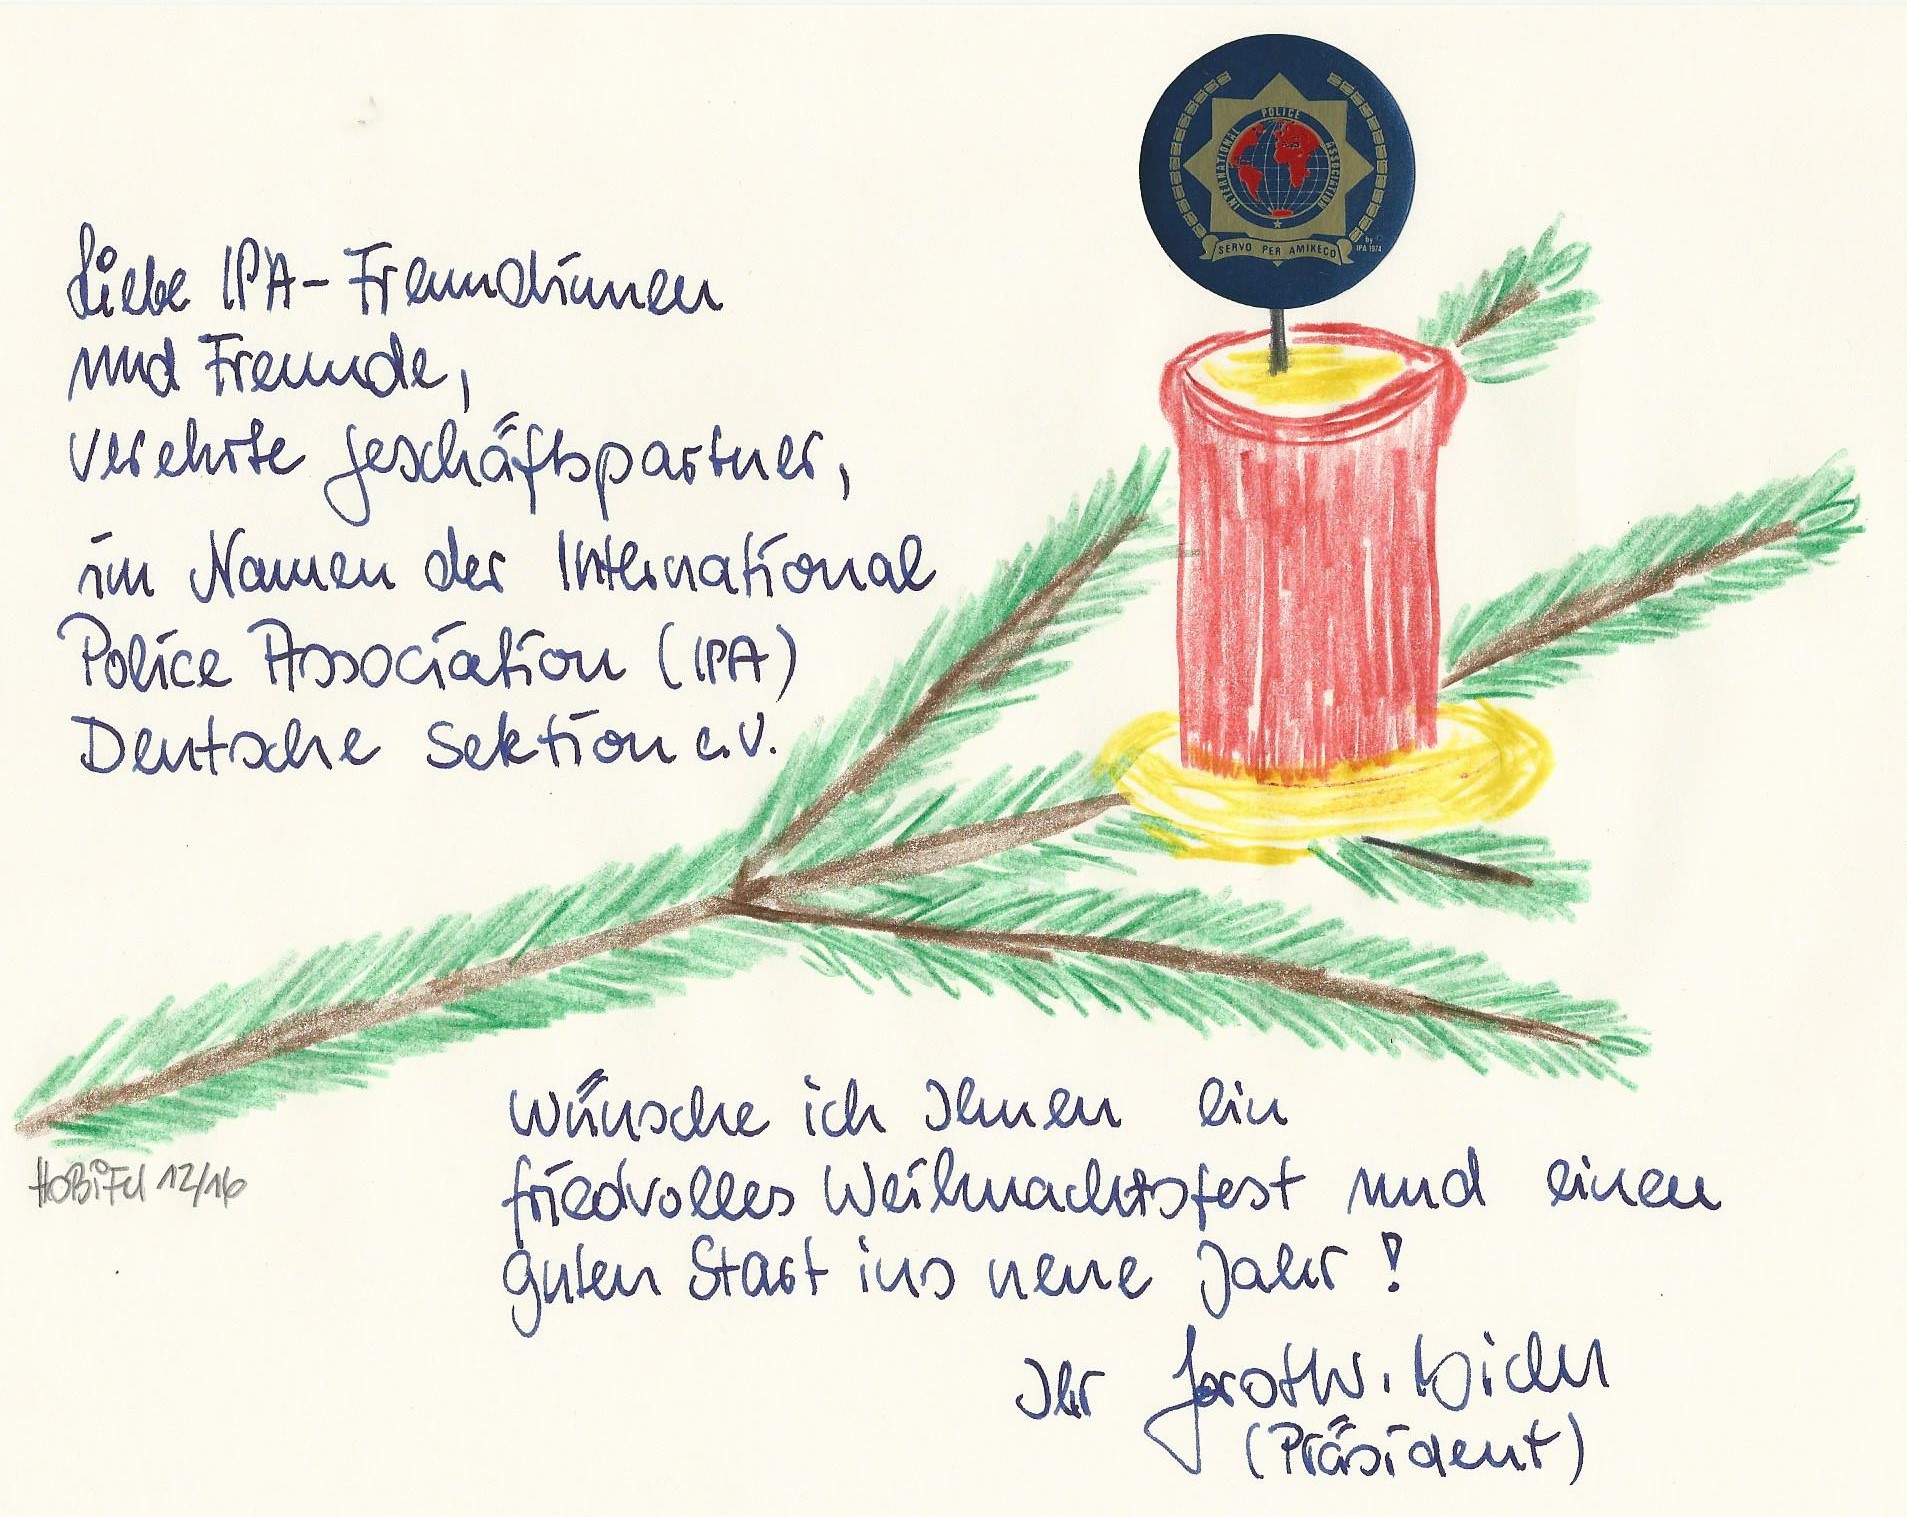 INTERNATIONAL POLICE ASSOCIATION
SERVO PER AMIKECO
by
IPA 1974
Liebe IPA-Freundinnen
und Freunde,
verehrte Geschäftspartner,
im Namen der International
Police Association (IPA)
Deutsche Sektion e.V.
wünsche ich Ihnen ein
friedvolles Weihnachtsfest und einen
guten Start ins neue Jahr!
12/16
Ihr Horst W. Bichl
(Präsident)